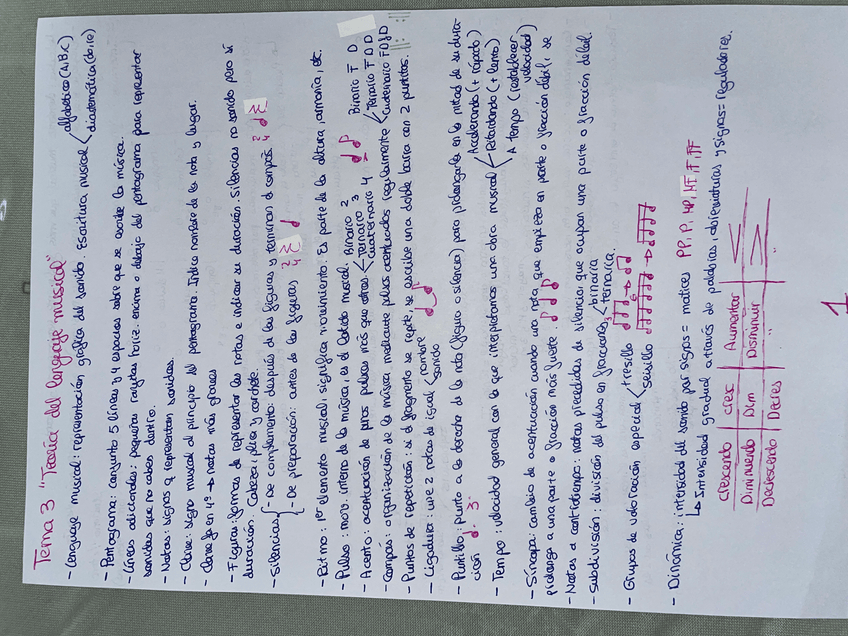 Tema 3 "Teoría del lenguaje musical"
- Lenguaje musical: representación gráfica del sonido. Escritura musical < alfabético (A,B,C)
diastemática (do, re)
- Pentagrama: conjunto 5 líneas y 4 espacios sobre que se escribe la música.
- Líneas adicionales: pequeñas rayitas horiz. encima o debajo del pentagrama para representar
sonidos que no caben dentro.
- Notas: signos q representan sonidos.
- Clave: signo musical al principio del pentagrama. Indica nombre de la nota y lugar.
- Clave fa en 4º → notas más graves
- Figuras: formas de representar las notas e indicar su duración. Silencios no sonido pero sí
duración. Cabeza, plica y corchete.
- Silencios { - De complemento: después de las figuras y terminan el compás. 2 4
- De preparación: antes de las figuras 2 4
- Ritmo: 1er elemento musical, significa movimiento. Es parte de la altura, armonía, etc.
- Pulso: mov. interno de la música, es el latido musical.
- Acento: acentuación de unos pulsos más que otros < Binario 2
Ternario 3
Cuaternario 4
- Compás: organización de la música, mediante pulsos acentuados regularmente < Binario F D
Ternario F D D
Cuaternario F D f D
- Puntos de repetición: si el fragmento se repite, se escribe una doble barra con 2 puntitos.
- Ligadura: une 2 notas de igual < nombre
sonido
- Puntillo: punto a la derecha de la nota (figura o silencio) para prolongarla en la mitad de su dura-
ción
- Tempo: velocidad general con la que interpretamos una obra musical < Accelerando (+ rápido)
Retardando (+ lento)
A tempo (restablecer
velocidad)
- Síncopa: cambio de acentuación cuando una nota que empieza en parte o fracción débil, se
prolonga a una parte o fracción más fuerte.
- Notas a contratiempo: notas precedidas de silencios que ocupan una parte o fracción débil.
- Subdivisión: división del pulso en fracciones < binaria
ternaria.
- Grupos de valoración especial < tresillo 3
seisillo 6
- Dinámica: intensidad del sonido por signos = matices PP, P, MP, MF, F, FF
↳ Intensidad gradual a través de palabras, abreviaturas y signos = reguladores.
Crescendo | Cresc | Aumentar | <
Diminuendo | Dim | Disminuir | >
Decrescendo | Decres | " | "
1